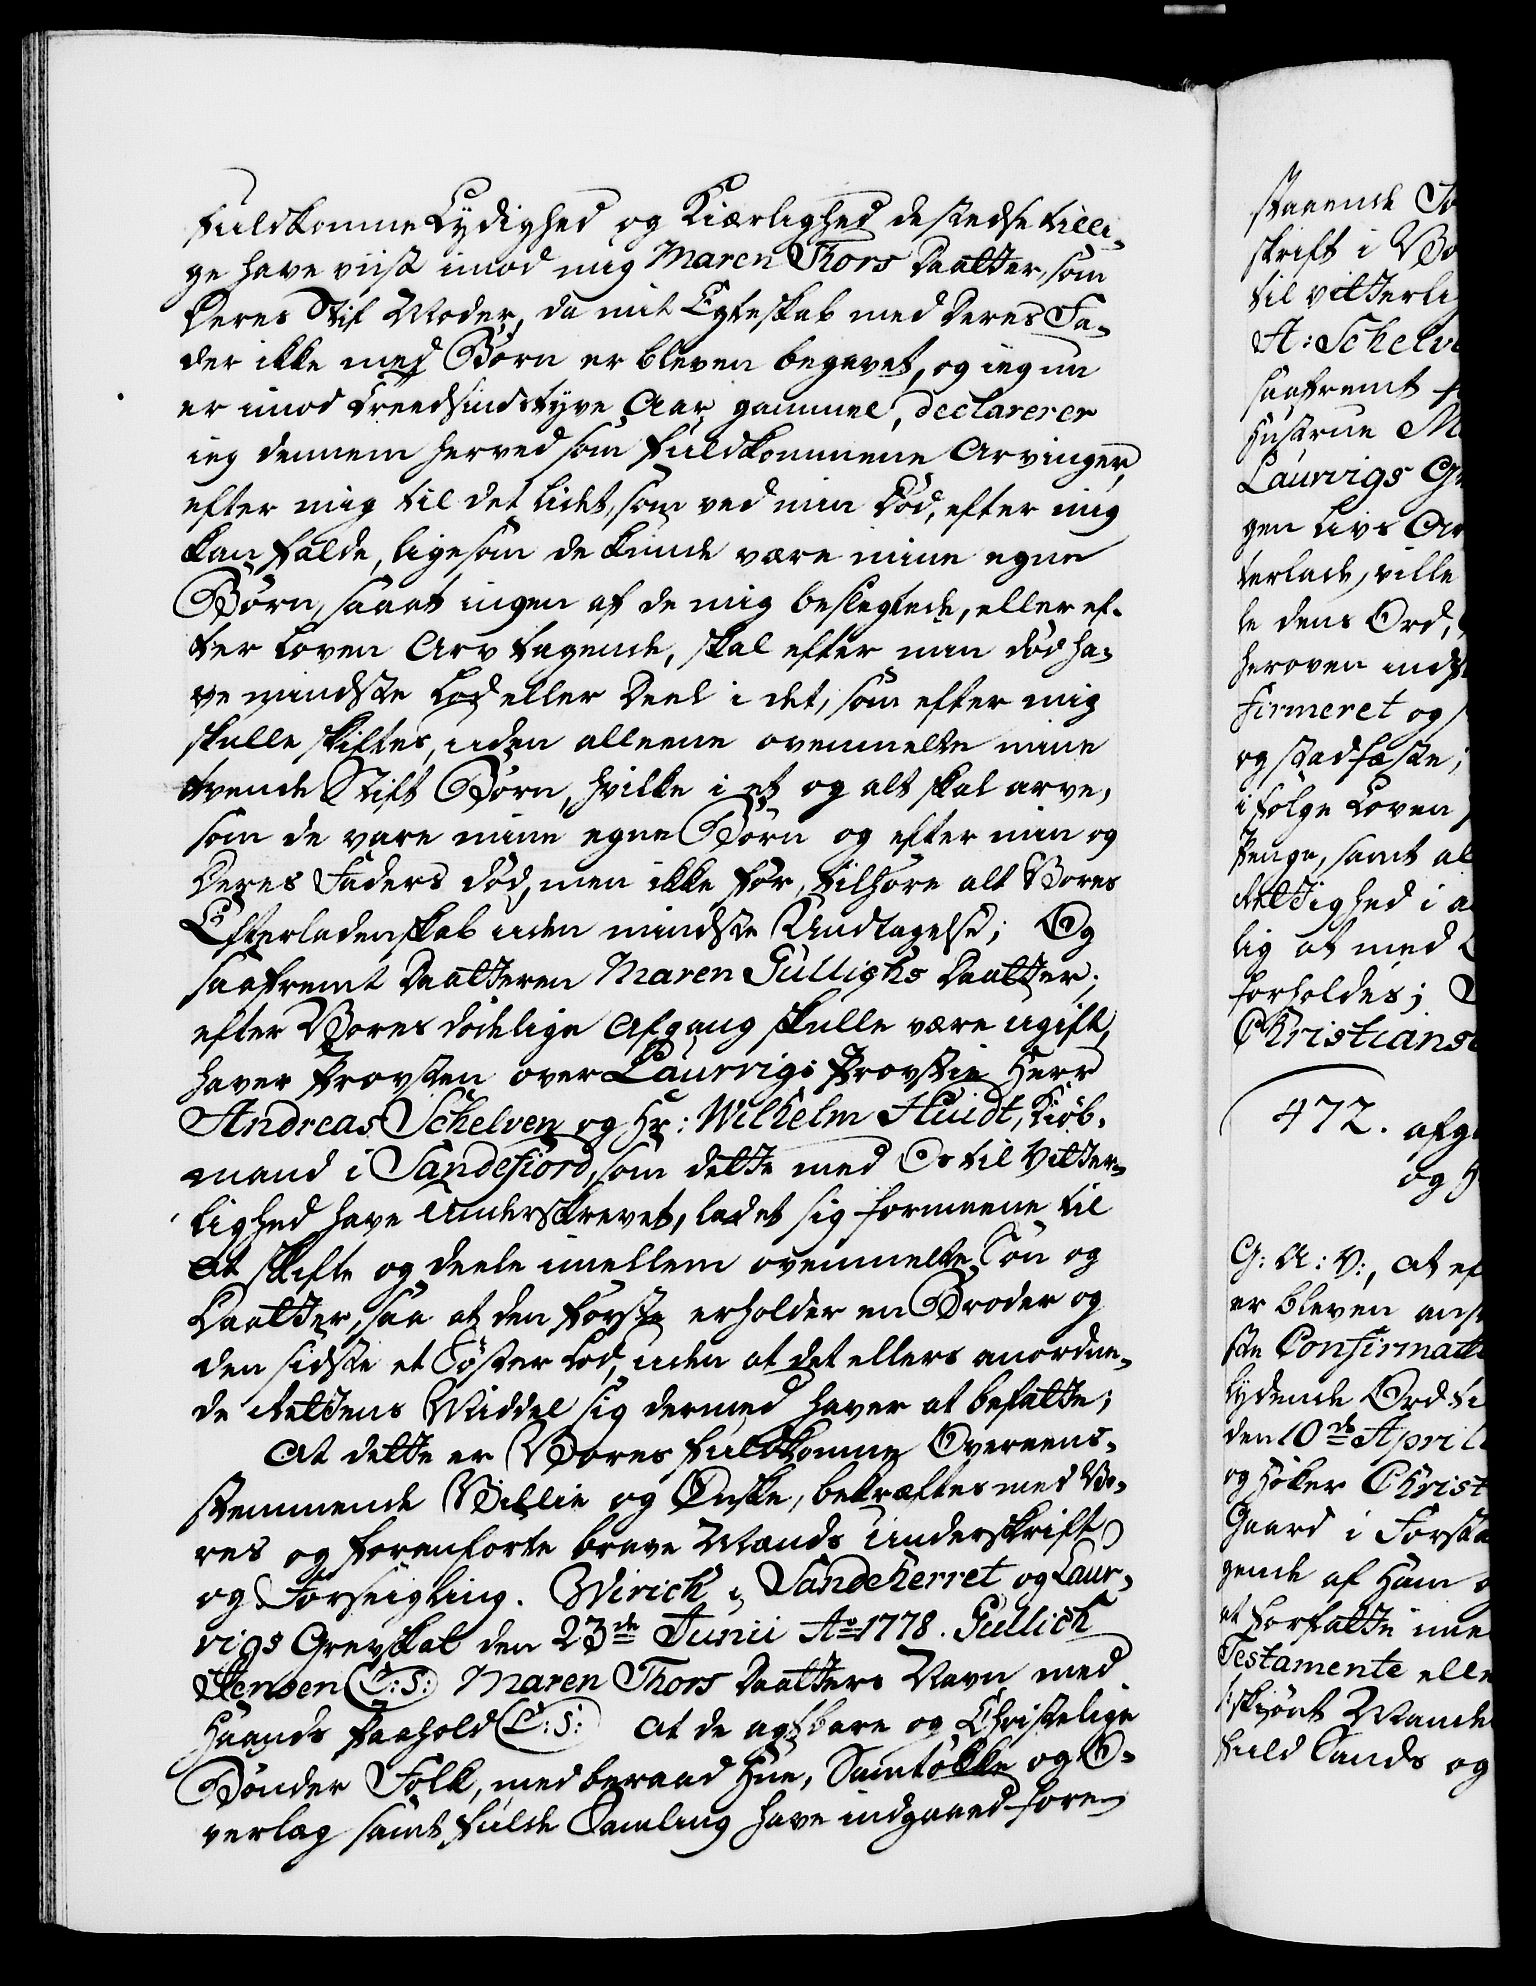 fuldkomne Lydighed og Kiærlighed de stedse tilli-
ge have viist imod mig Maren Thors Daatter, som
Deres Stif Moder, da mit Egteskab med Deres Fa-
der ikke med Børn er bleven begavet, og ieg nu
er imod treedsindstyve Aar gammel, declarerer
ieg dennem herved som fuldkommene Arvinger,
efter mig til det lidet, som ved min Død, efter mig
kan falde, ligesom de kunde være mine egne
Børn, saaat ingen af de mig beslegtede, eller ef-
ter Loven Arv tagende, skal efter min død ha-
ve mindste Lod eller Deel i det, som efter mig
skulle skiftes, uden alleene ovenmelte mine
tvende Stift Børn, hvilke i et og alt skal arve,
som de vare mine egne Børn og efter min og
Deres Faders død, men ikke før, tilhøre alt Vores
Efterladenskab uden mindste Undtagelse; Og
saafremt Daatteren Maren Gullichs Daatter,
efter Vores dødelige Afgang skulle være ugift,
haver Provsten over Laurvigs Provstie Herr
Andreas Schelven og Hr: Wilhelm Huidt, Kiøb-
mand i Sandefiord, som dette med Os til Vitter-
lighed have Underskrevet, ladet sig formeene til
at skifte og deele imellem ovenmelte Søn og
Daatter, saa at den første erholder en Broder og
den sidste et Søster Lod, uden at det ellers anordne-
de Rettens Middel sig dermed haver at befatte;
At dette er Vores fuldkomne Overeens-
stemmende Villie og Ønske, bekræftes med Vo-
res og forenførte brave Mænds Underskrift
og Forseigling. Wirich i Sandeherret og Laur-
vigs Grevskab den 23de Junii Ao 1778. Gullich
Jensen (L:S:) Maren Thors Daatters Navn med
Haands Paahold (L:S:) At de agtbare og Christelige
Bønder Folk, med beraad Hue, Samtökke og O-
verlag samt fulde Samling have indgaaed foren-
staaende
skrift i
til vitterlig
A: Schelve
saafremt
Hustrue
Laurvigs
gen Livs
terlade, ville
le dens Ord,
heroven
firmeret og
og stadfæste;
ifølge Loven
Penge, samt
Rettighed i
lig at med
forholdes;
Christians
472. 
og
G: A: V:, at
er bleven
ste Confirmati
lydende Ord
den 10de April
og Høker Christ
Gaard i
gende af Ham
at forfatte
Testamente elle
skiønt
fuld Sands og